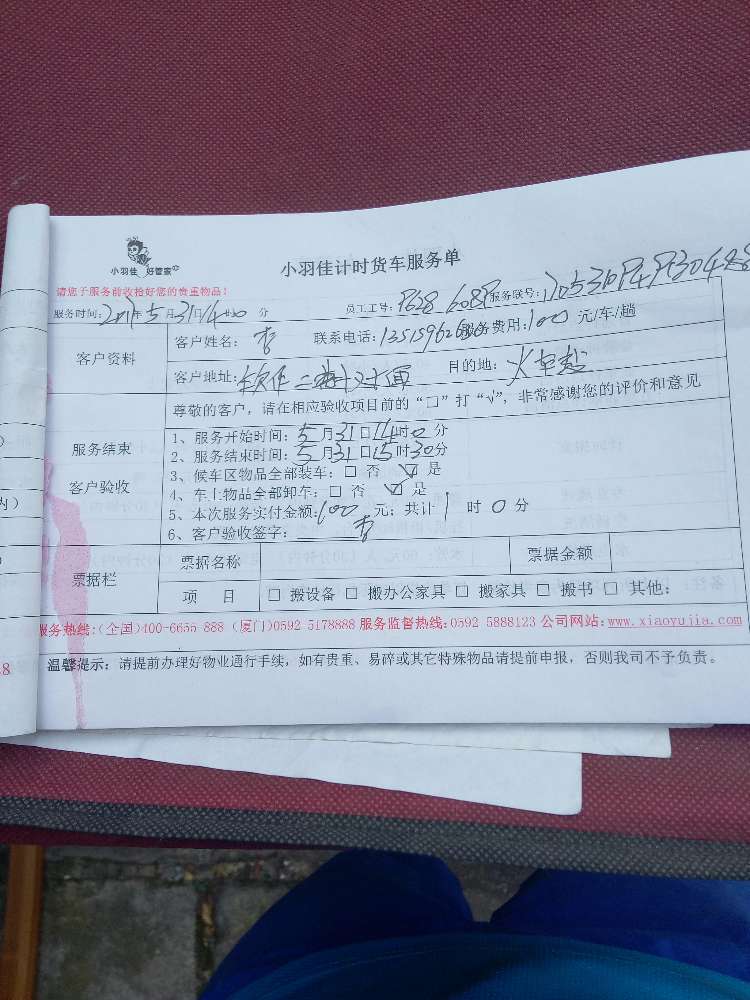 小羽佳 好管家
小羽佳计时货车服务单
请您于服务前收拾好您的贵重物品!
服务时间: 2017年5月31日14时00分 员工工号: P628 608P 服务联号:
客户资料
客户姓名: 李 联系电话: 服务费用: 100 元/车/趟
客户地址: 软件二期对面 目的地: 火车站
尊敬的客户,请在相应验收项目前的“口”打“√”,非常感谢您的评价和意见
服务结束
客户验收
1、服务开始时间: 5月31日14时0分
2、服务结束时间: 5月31日15时30分
3、候车区物品全部装车: □ 否 ☑ 是
4、车上物品全部卸车: □ 否 ☑ 是
5、本次服务实付金额: 100 元; 共计 1 时 0 分
6、客户验收签字: 李
票据栏
票据名称 票据金额
项 目 □ 搬设备 □ 搬办公家具 □ 搬家具 □ 搬书 □ 其他:
服务热线:(全国)400-6655 888 (厦门)0592 5178888 服务监督热线:0592 5888123 公司网站:www.xiaoyujia.com
温馨提示: 请提前办理好物业通行手续,如有贵重、易碎或其它特殊物品请提前申报,否则我司不予负责。
内)
28